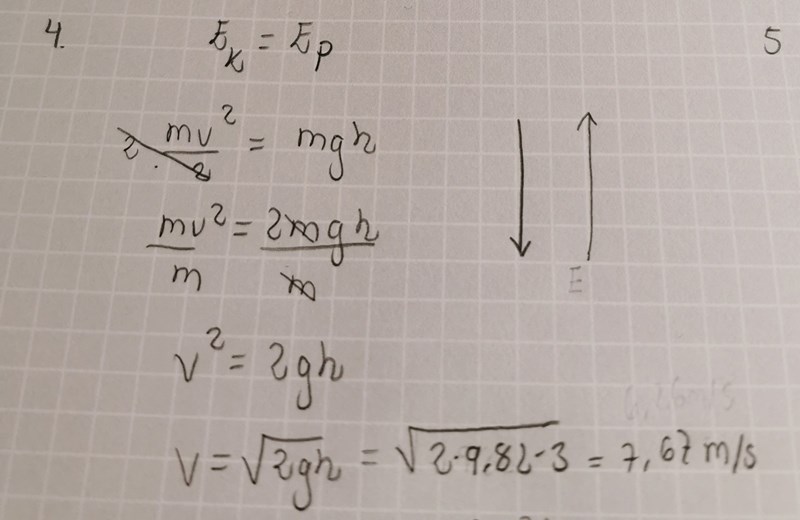 4. E_K = E_P 5
2 · mv²/2 = mgh
mv²/m = 2mgh/m
E
v² = 2gh
V = √2gh = √2·9,82·3 = 7,67 m/s